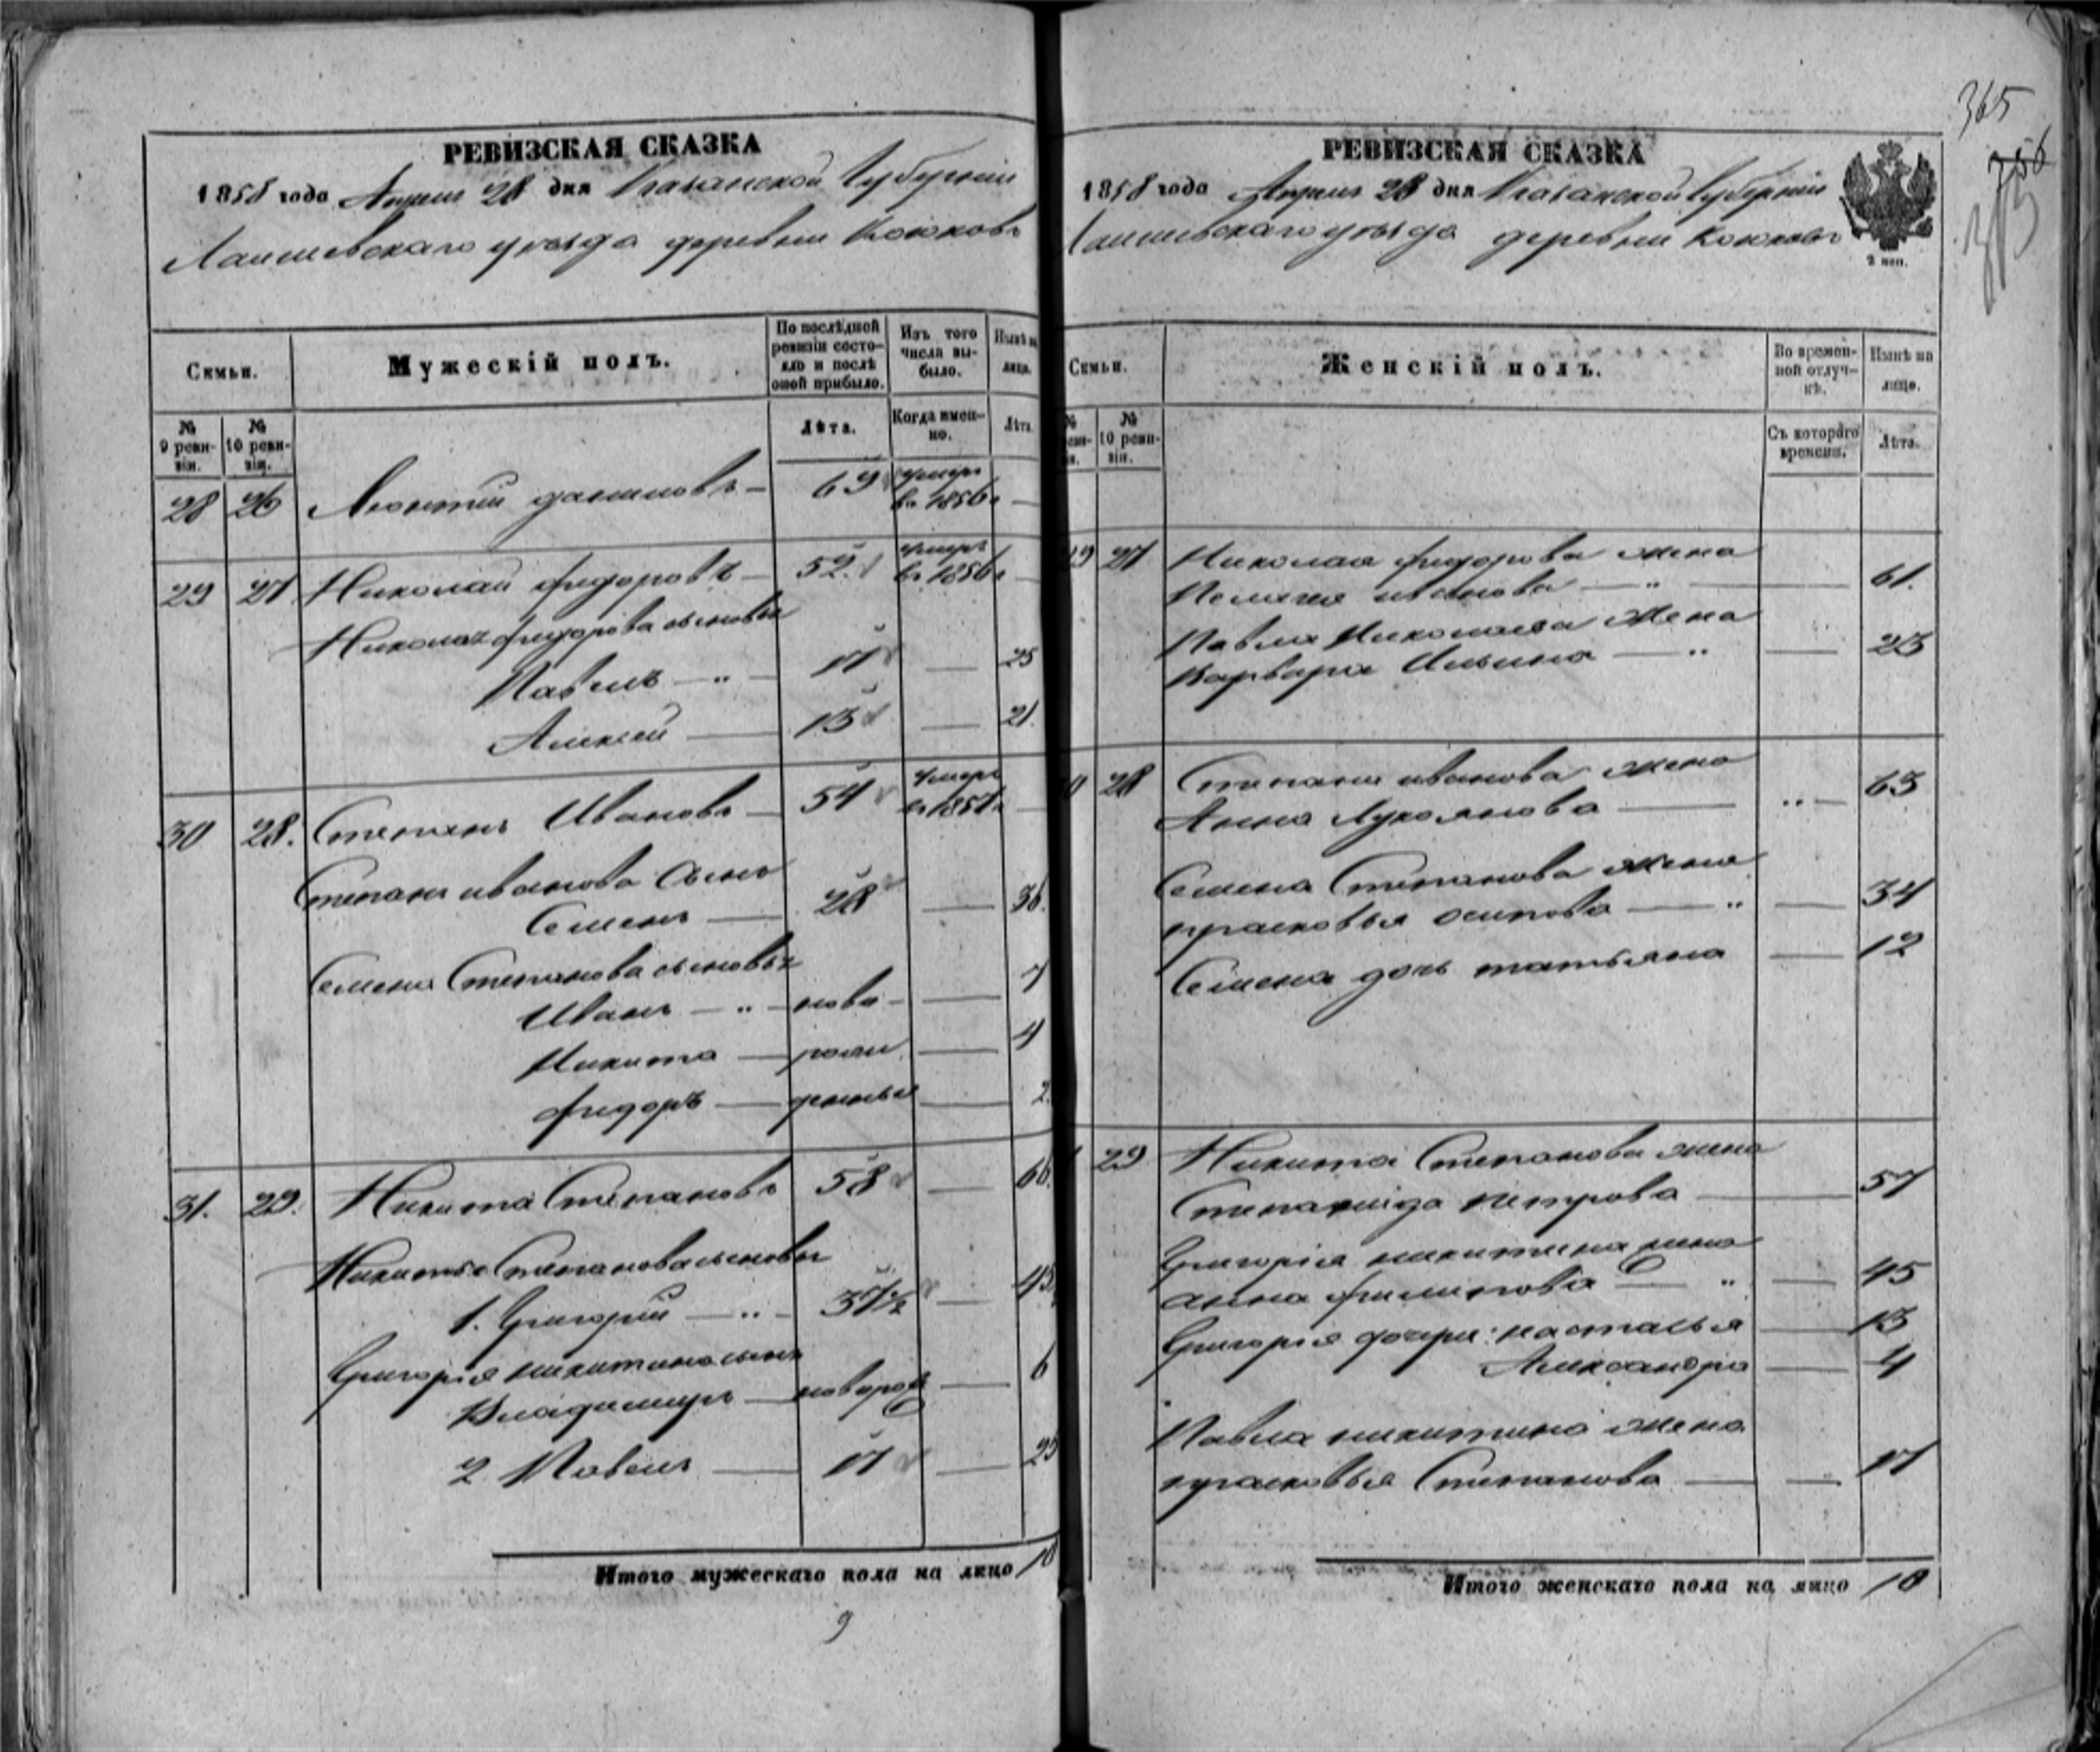 РЕВИЗСКАЯ СКАЗКА
1858 года Апреля 28 дня Казанской Губерніи
Лаишевскаго уѣзда деревни Коюковъ
Семьи.
Мужескій полъ.
По послѣдней ревизіи состояло и послѣ оной прибыло.
Изъ того числа выбыло.
Нынѣ на лицо.
№ 9 ревизіи.
№ 10 ревизіи.
Лѣта.
Когда именно.
Лѣта.
28 26 Леонтій даниловъ — 69 умеръ въ 1856 г —
29 27 Николай федоровъ — 52. умеръ въ 1856 г —
Николая федорова сыновья
Павелъ — " — 17 — 25
Алексей — 13 — 21.
30 28. Степанъ Ивановъ — 54 умеръ въ 1857 г —
Степана иванова сынъ
Семенъ — 28 — 36.
Семена Степанова сыновья
Иванъ — " — ново — 7
Никита — рож — 4
федоръ — денные — 2
31. 29. Никита Степановъ 58 — 66.
Никиты Степанова сыновья
1. Григорій — " — 37½ — 45
Григорія никитина сынъ
Владимиръ — новорож — 6
2 Павелъ — 17 — 25
Итого мужескаго пола на лицо 10
9
365
356
РЕВИЗСКАЯ СКАЗКА
1858 года Апреля 28 дня Казанской Губерніи
Лаишевскаго уѣзда деревни Коюковъ
2 коп.
Семьи.
Женскій полъ.
Во временной отлучкѣ.
Нынѣ на лицо.
№ 10 ревизіи.
Съ котораго времени.
Лѣта.
29 27 Николая федорова жена
Пелагея иванова — " — 61.
Павла Николаева жена
Варвара Ильина — " — 23
28 Степана иванова жена
Анна Лукоянова — " — 63
Семена Степанова жена
прасковья осипова — " — 34
Семена дочь татьяна — 12
29 Никита Степанова жена
Степанида петрова — 57
Григорія никитина жена
анна филипова — " — 45
Григорія дочери: насталья — 13
Александра — 4
Павла никитина жена
прасковья Степанова — 17
Итого женскаго пола на лицо 10